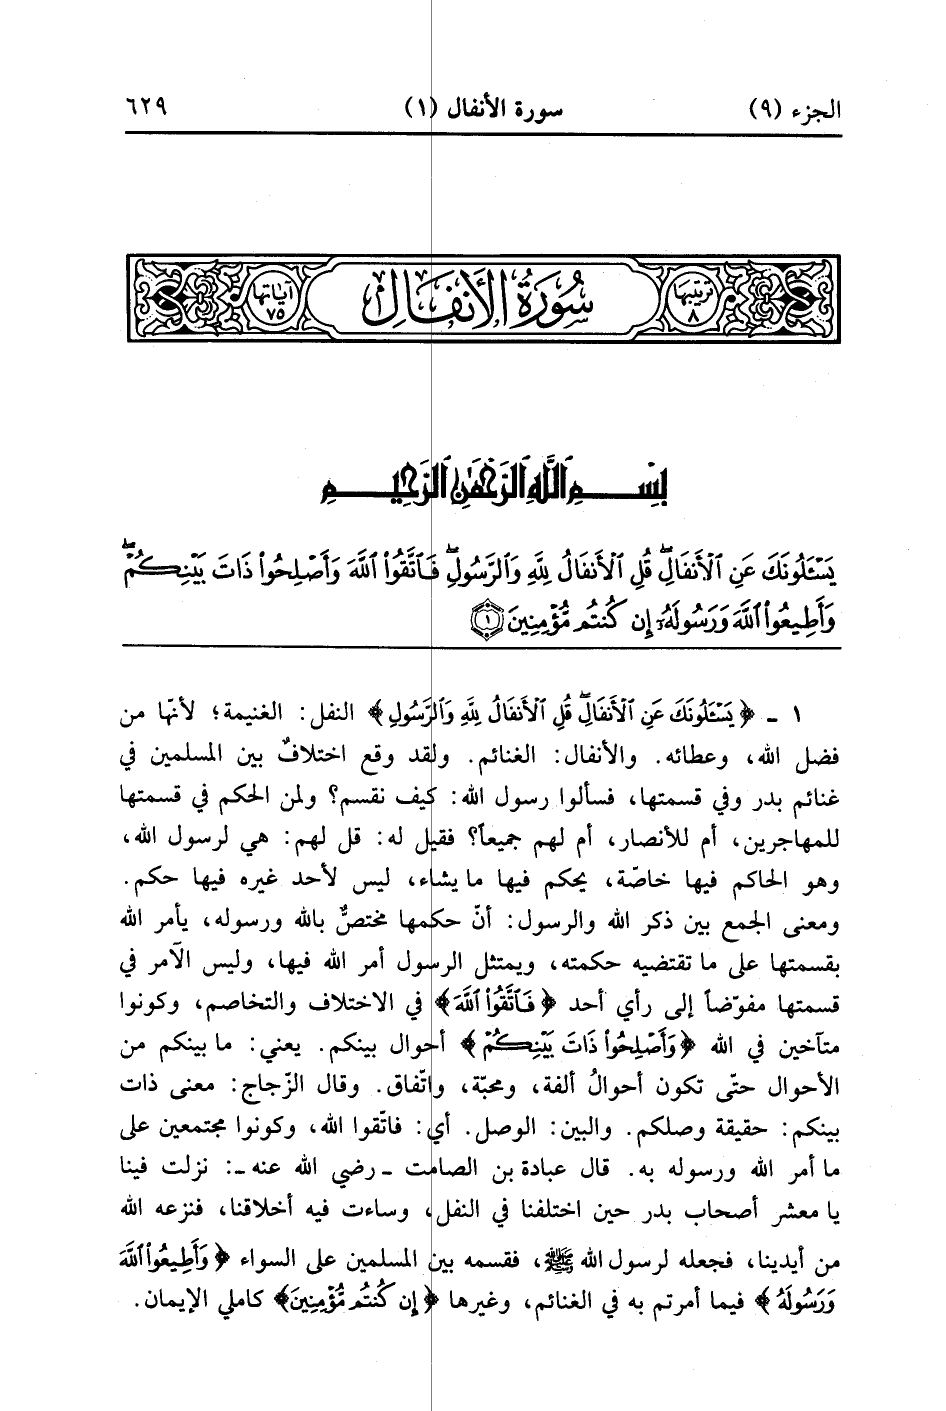 الجزء (٩)
سورة الأنفال (١)
٦٢٩
ترتيبها ٨
سُورَةُ الأَنفَال
آياتها ٧٥
بِسْمِ ٱللَّهِ ٱلرَّحْمَٰنِ ٱلرَّحِيمِ
يَسْـَٔلُونَكَ عَنِ ٱلْأَنفَالِۖ قُلِ ٱلْأَنفَالُ لِلَّهِ وَٱلرَّسُولِۖ فَٱتَّقُوا۟ ٱللَّهَ وَأَصْلِحُوا۟ ذَاتَ بَيْنِكُمْۖ
وَأَطِيعُوا۟ ٱللَّهَ وَرَسُولَهُۥٓ إِن كُنتُم مُّؤْمِنِينَ ١
١ ـ ﴿يَسْـَٔلُونَكَ عَنِ ٱلْأَنفَالِۖ قُلِ ٱلْأَنفَالُ لِلَّهِ وَٱلرَّسُولِ﴾ النفل: الغنيمة؛ لأنّها من
فضل الله، وعطائه. والأنفال: الغنائم. ولقد وقع اختلافٌ بين المسلمين في
غنائم بدر وفي قسمتها، فسألوا رسول الله: كيف نقسم؟ ولمن الحكم في قسمتها
للمهاجرين، أم للأنصار، أم لهم جميعاً؟ فقيل له: قل لهم: هي لرسول الله،
وهو الحاكم فيها خاصّة، يحكم فيها ما يشاء، ليس لأحد غيره فيها حكم.
ومعنى الجمع بين ذكر الله والرسول: أنّ حكمها مختصٌّ بالله ورسوله، يأمر الله
بقسمتها على ما تقتضيه حكمته، ويمتثل الرسول أمر الله فيها، وليس الأمر في
قسمتها مفوّضاً إلى رأي أحد ﴿فَٱتَّقُوا۟ ٱللَّهَ﴾ في الاختلاف والتخاصم، وكونوا
متآخين في الله ﴿وَأَصْلِحُوا۟ ذَاتَ بَيْنِكُمْ﴾ أحوال بينكم. يعني: ما بينكم من
الأحوال حتّى تكون أحوالُ ألفة، ومحبّة، واتّفاق. وقال الزّجاج: معنى ذات
بينكم: حقيقة وصلكم. والبين: الوصل. أي: فاتّقوا الله، وكونوا مجتمعين على
ما أمر الله ورسوله به. قال عبادة بن الصامت ـ رضي الله عنه ـ: نزلت فينا
يا معشر أصحاب بدر حين اختلفنا في النفل، وساءت فيه أخلاقنا، فنزعه الله
من أيدينا، فجعله لرسول الله ﷺ، فقسمه بين المسلمين على السواء ﴿وَأَطِيعُوا۟ ٱللَّهَ
وَرَسُولَهُ﴾ فيما أمرتم به في الغنائم، وغيرها ﴿إِن كُنتُم مُّؤْمِنِينَ﴾ كاملي الإيمان.